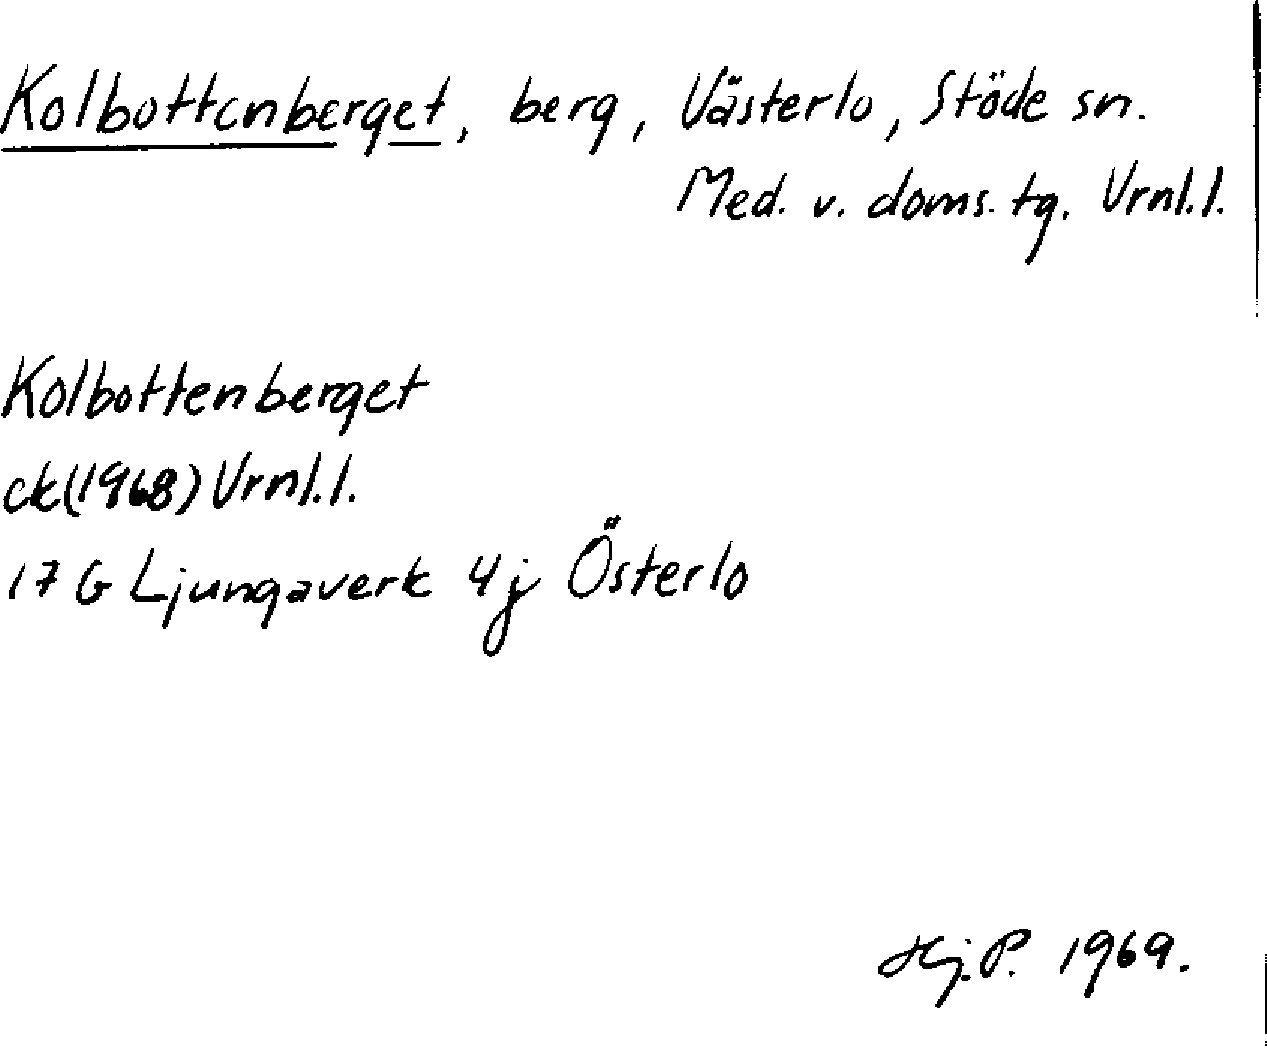 Kolbottenberget, berg, Västerlo, Stöde sn.
Med. v. doms. tg. Vrnl. l.
Kolbottenberget
ck (1968) Vrnl. l.
17 G Ljungaverk 4j Österlo
Hj. P. 1969.